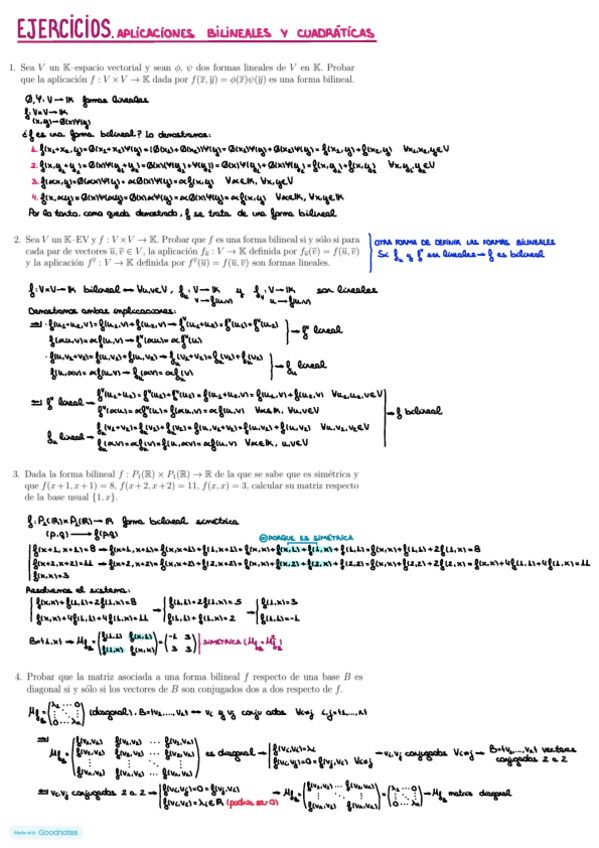 EJERCICIOS. APLICACIONES BILINEALES Y CUADRÁTICAS
1. Sea V un 𝕂–espacio vectorial y sean ϕ, ψ dos formas lineales de V en 𝕂. Probar
que la aplicación f : V × V → 𝕂 dada por f(x̅, y̅) = ϕ(x̅)ψ(y̅) es una forma bilineal.
Ø, Ψ: V → 𝕂 formas lineales
f: V×V → 𝕂
(x,y) → Ø(x)Ψ(y)
¿f es una forma bilineal? Lo demostramos:
1. f(x₁+x₂, y) = Ø(x₁+x₂)Ψ(y) = (Ø(x₁)+Ø(x₂))Ψ(y) = Ø(x₁)Ψ(y)+Ø(x₂)Ψ(y) = f(x₁,y)+f(x₂,y) ∀x₁,x₂,y∈V
2. f(x, y₁+y₂) = Ø(x)Ψ(y₁+y₂) = Ø(x)(Ψ(y₁)+Ψ(y₂)) = Ø(x)Ψ(y₁)+Ø(x)Ψ(y₂) = f(x,y₁)+f(x,y₂) ∀x,y₁,y₂∈V
3. f(αx,y) = Ø(αx)Ψ(y) = αØ(x)Ψ(y) = αf(x,y) ∀α∈𝕂, ∀x,y∈V
4. f(x,αy) = Ø(x)Ψ(αy) = Ø(x)αΨ(y) = αØ(x)Ψ(y) = αf(x,y) ∀α∈𝕂, ∀x,y∈𝕂
Por lo tanto, como queda demostrado, f se trata de una forma bilineal
2. Sea V un 𝕂–EV y f : V × V → 𝕂. Probar que f es una forma bilineal si y sólo si para
cada par de vectores u̅, v̅ ∈ V, la aplicación f_u̅ : V → 𝕂 definida por f_u̅(v̅) = f(u̅, v̅)
y la aplicación f^v̅ : V → 𝕂 definida por f^v̅(u̅) = f(u̅, v̅) son formas lineales.
OTRA FORMA DE DEFINIR LAS FORMAS BILINEALES
Si f_u y f^v son lineales → f es bilineal
f: V×V → 𝕂 bilineal ↔ ∀u,v∈V, f_u: V → 𝕂 y f_v: V → 𝕂 son lineales
v → f(u,v) u → f(u,v)
Demostramos ambas implicaciones:
⇒ · f(u₁+u₂,v) = f(u₁,v)+f(u₂,v) → f^v(u₁+u₂) = f^v(u₁)+f^v(u₂)
f(αu,v) = αf(u,v) → f^v(αu) = αf^v(u)
→ f^v lineal
· f(u,v₁+v₂) = f(u,v₁)+f(u,v₂) → f_u(v₁+v₂) = f_u(v₁)+f_u(v₂)
f(u,αv) = αf(u,v) → f_u(αv) = αf_u(v)
→ f_u lineal
⇐ f^v lineal → f^v(u₁+u₂) = f^v(u₁)+f^v(u₂) = f(u₁+u₂,v) = f(u₁,v)+f(u₂,v) ∀u₁,u₂,v∈V
f^v(αu) = αf^v(u) = f(αu,v) = αf(u,v) ∀α∈𝕂, ∀u,v∈V
f_u lineal → f_u(v₁+v₂) = f_u(v₁)+f_u(v₂) = f(u,v₁+v₂) = f(u,v₁)+f(u,v₂) ∀u,v₁,v₂∈V
f_u(αv) = αf_u(v) = f(u,αv) = αf(u,v) ∀α∈𝕂, u,v∈V
→ f bilineal
3. Dada la forma bilineal f : P₁(ℝ) × P₁(ℝ) → ℝ de la que se sabe que es simétrica y
que f(x + 1, x + 1) = 8, f(x + 2, x + 2) = 11, f(x, x) = 3, calcular su matriz respecto
de la base usual {1, x}.
f: P₁(ℝ)×P₁(ℝ) → ℝ forma bilineal simétrica
(p,q) → f(p,q)
PORQUE ES SIMÉTRICA
f(x+1,x+1)=8 → f(x+1,x+1) = f(x,x+1)+f(1,x+1) = f(x,x)+f(x,1)+f(1,x)+f(1,1) = f(x,x)+f(1,1)+2f(1,x) = 8
f(x+2,x+2)=11 → f(x+2,x+2) = f(x,x+2)+f(2,x+2) = f(x,x)+f(x,2)+f(2,x)+f(2,2) = f(x,x)+f(2,2)+2f(2,x) = f(x,x)+4f(1,x)+4f(1,1) = 11
f(x,x)=3
Resolvemos el sistema:
f(x,x)+f(1,1)+2f(1,x)=8 → f(1,1)+2f(1,x)=5 → f(1,x)=3
f(x,x)+4f(1,1)+4f(1,x)=11 f(1,1)+f(1,x)=2 f(1,1)=-1
B={1,x} → M_f,B = (f(1,1) f(x,1) = (-1 3 SIMÉTRICA
f(1,x) f(x,x)) 3 3)
4. Probar que la matriz asociada a una forma bilineal f respecto de una base B es
diagonal si y sólo si los vectores de B son conjugados dos a dos respecto de f.
(diagonal), B={v₁,...,vₙ} ↔ vᵢ y vⱼ conjugados ∀i≠j i,j=1,...,n
⇒ es diagonal → f(vᵢ,vᵢ)=λᵢ
f(vᵢ,vⱼ)=0=f(vⱼ,vᵢ) ∀i≠j
→ vᵢ,vⱼ conjugados ∀i≠j → B={v₁,...,vₙ} vectores
conjugados 2 a 2
⇐ vᵢ,vⱼ conjugados 2 a 2 → f(vᵢ,vⱼ)=0=f(vⱼ,vᵢ)
f(vᵢ,vᵢ)=λᵢ∈ℝ (podría ser 0)
→ M_f,B matriz diagonal
Made with Goodnotes